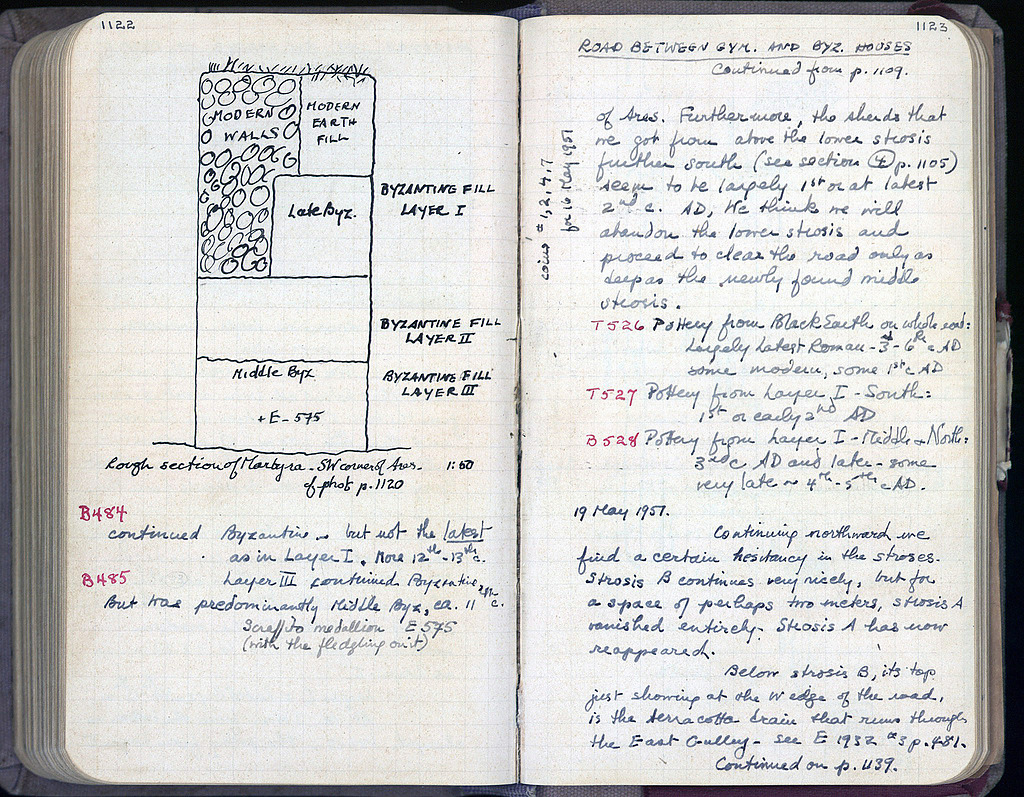 1122
MODERN
WALLS
MODERN
EARTH
FILL
Late Byz.
BYZANTINE FILL
LAYER I
BYZANTINE FILL
LAYER II
Middle Byz
BYZANTINE FILL
LAYER III
+ E-575
Rough section of Martyra - SW corner of Area. 1:50
cf phot p. 1120
B484
continued Byzantine - but not the latest
as in Layer I. More 12th-13th c.
B485 Layer III continued Byzantine,
But was predominantly Middle Byz, ca. 11 c.
Scraffito medallion E 575
(with the fledgling on it)
1123
ROAD BETWEEN GYM. AND BYZ. HOUSES
Continued from p. 1109.
coins #1, 2, 4, 7
for 16 May 1951
of Area. Furthermore, the sherds that
we got from above the lower strosis
further south (see section p. 1105)
seem to be largely 1st or at latest
2nd c. AD, We think we will
abandon the lower strosis and
proceed to clear the road only as
deep as the newly found middle
strosis.
T526 Pottery from Black Earth on whole road:
Largely Latest Roman - 3rd-6th c AD
some modern, some 1st c AD
T527 Pottery from Layer I - South:
1st or early 2nd AD
B528 Pottery from Layer I - Middle + North:
3rd c. AD and later - some
very late ~ 4th-5th c AD.
19 May 1951.
Continuing northward we
find a certain hesitancy in the stroses.
Strosis B continues very nicely, but for
a space of perhaps two meters, strosis A
vanished entirely. Strosis A has now
reappeared.
Below strosis B, its top
just showing at the W edge of the road,
is the terracotta drain that runs through
the East Gulley - see E 1932 #3 p. 481.
Continued on p. 1139.